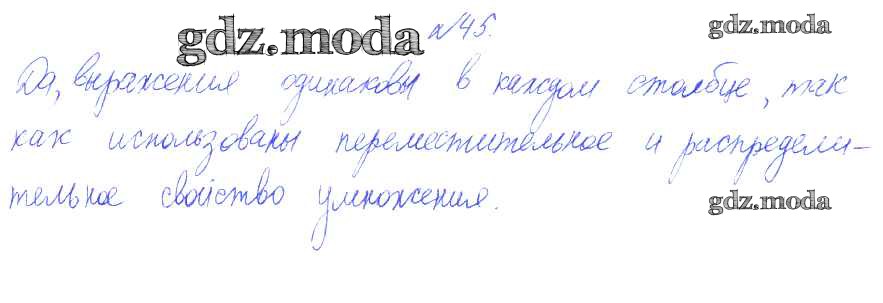 gdz.moda №45. gdz.moda
Да, выражения одинаковы в каждом столбце, так
как использованы переместительное и распредели-
тельное свойство умножения.
gdz.moda